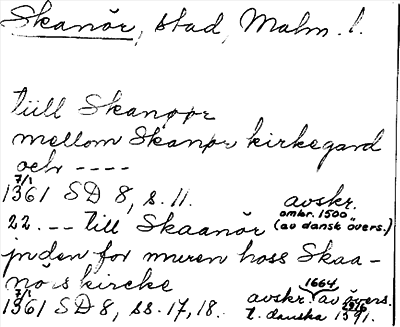 Skanör, stad, Malm. l.
till Skanøør
mellom Skanør kirkegard
och ----
7/1
1361 SD 8, s. 11. avskr.
omkr. 1500
22. -- till Skaanör (av dansk övers.)
jnden for muren hoss Skaa-
nörs kircke
7/1 1664
1361 SD 8, ss. 17, 18. avskr. av övers.
t. danska 1591.